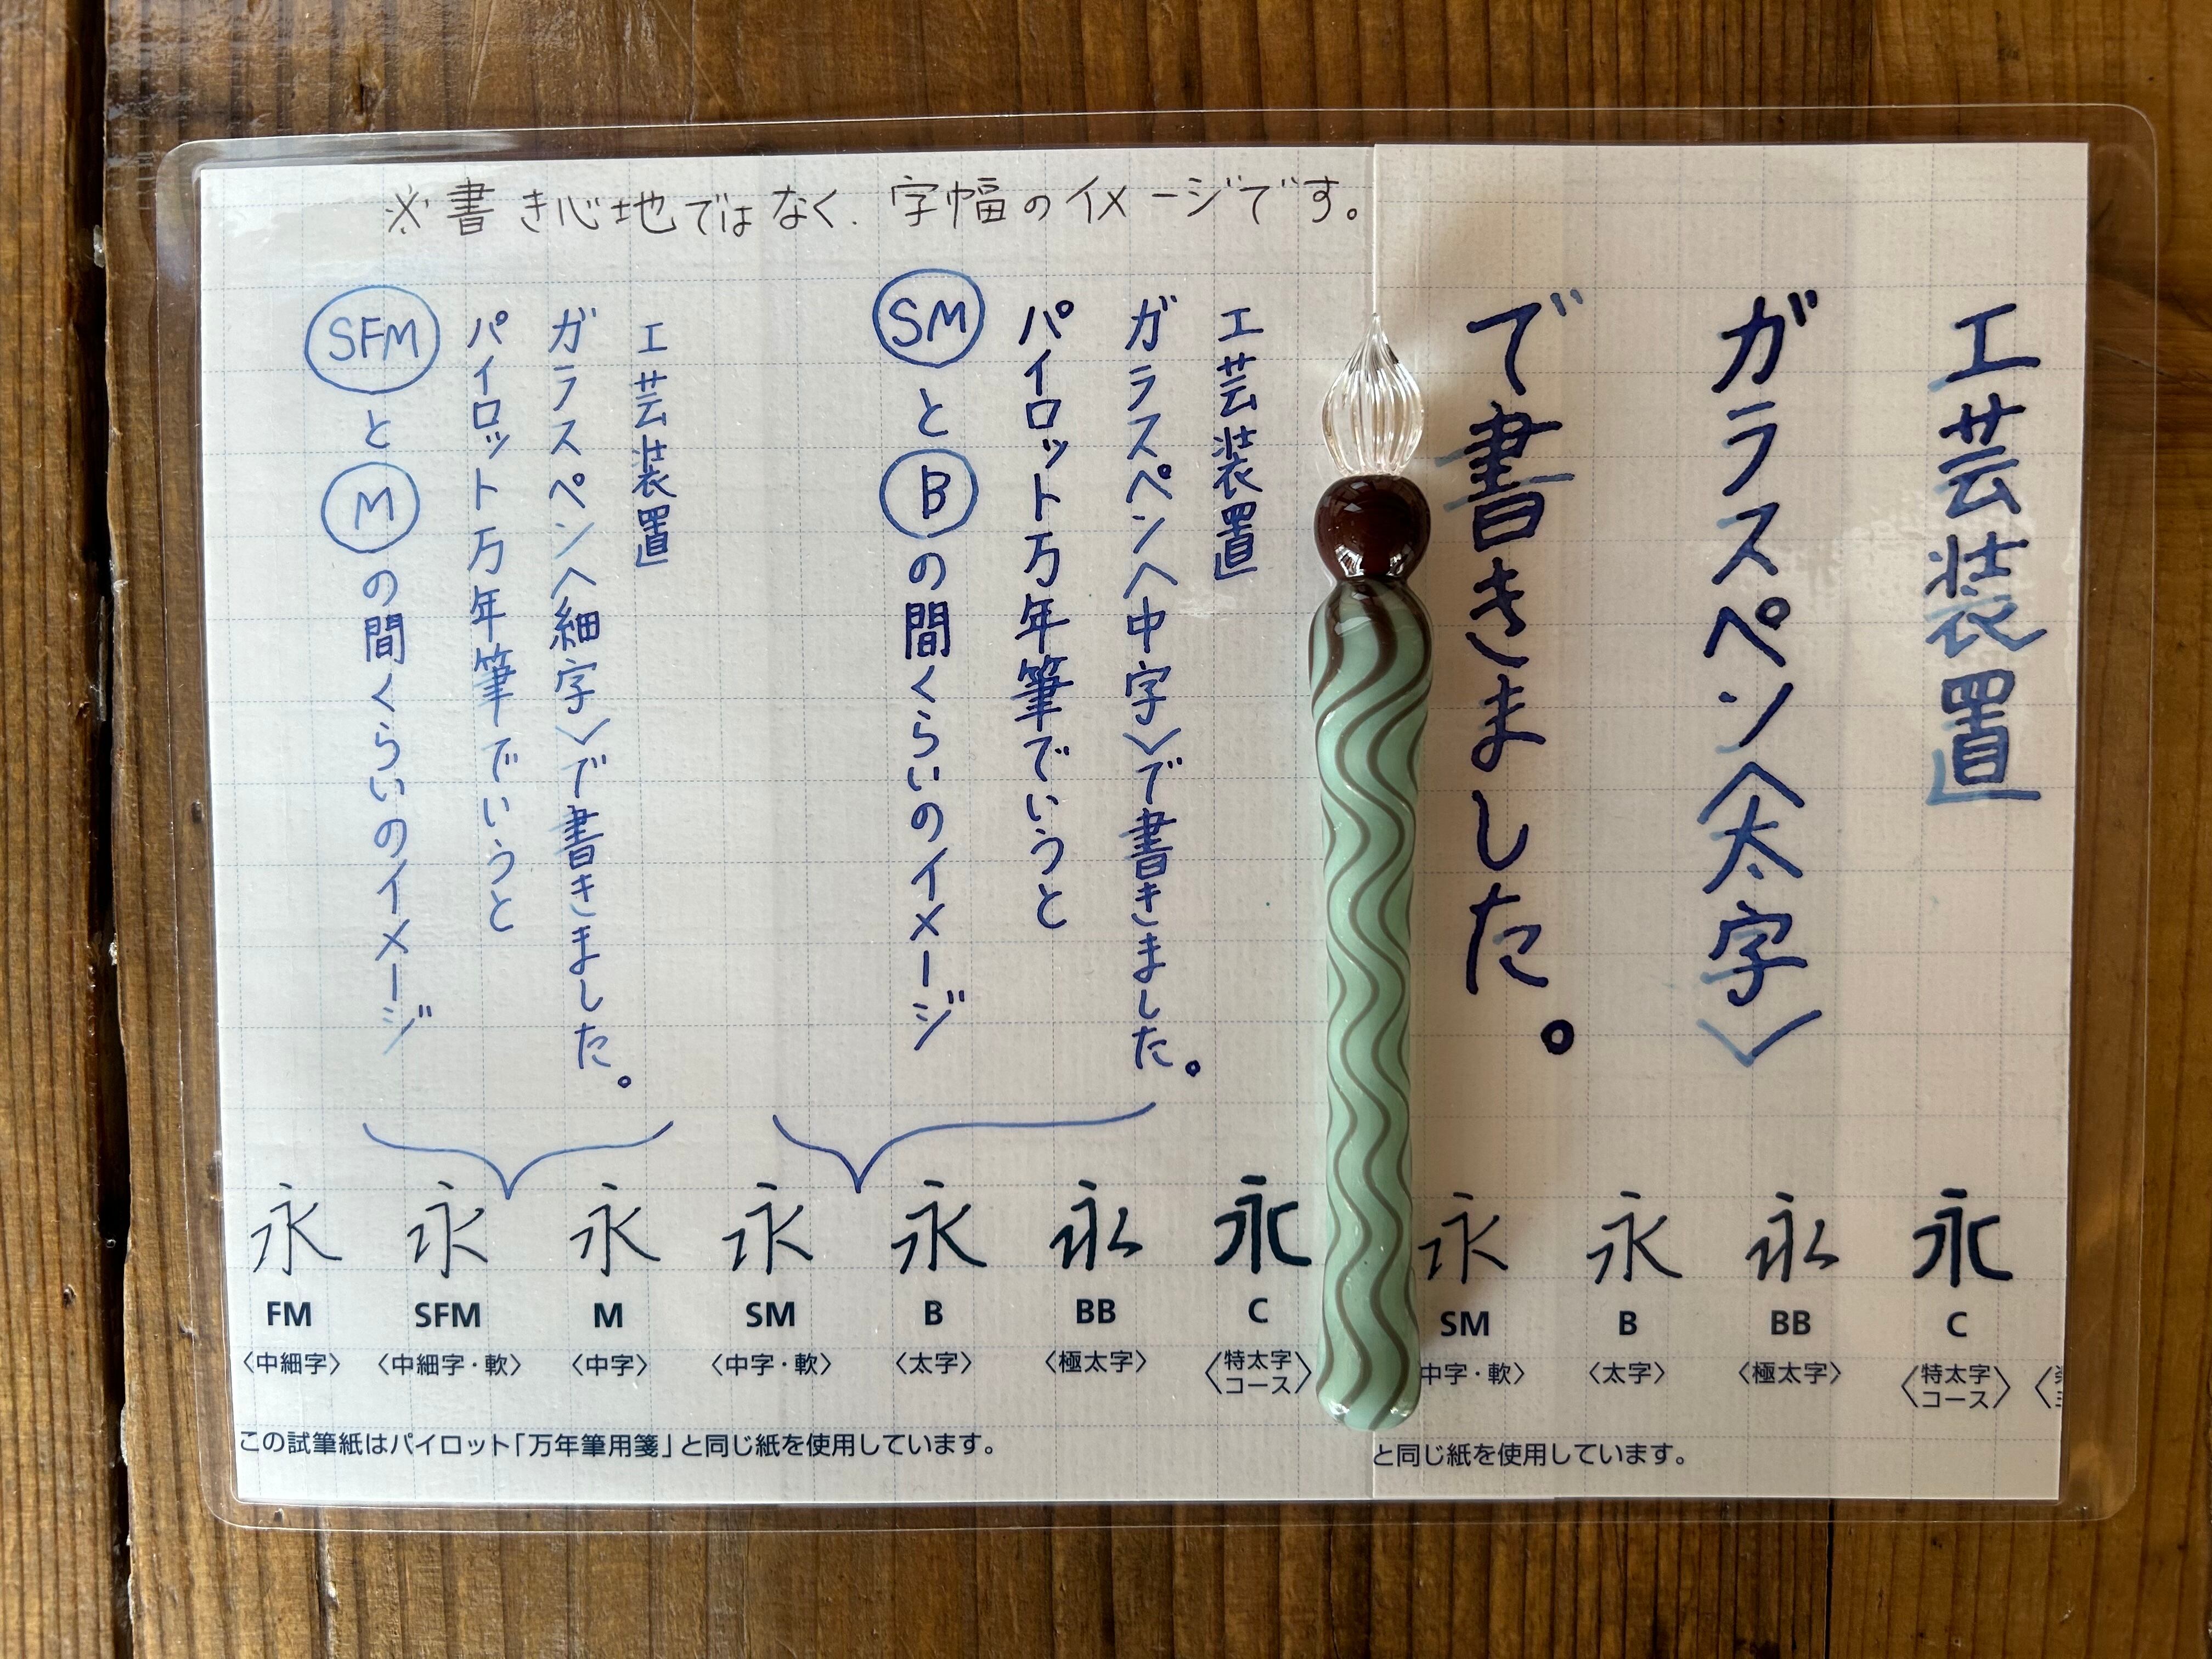 ※書き心地ではなく、字幅のイメージです。
工芸装置
ガラスペン〈太字〉
で書きました。
工芸装置
ガラスペン〈中字〉で書きました。
パイロット万年筆でいうと
SMとBの間くらいのイメージ
工芸装置
ガラスペン〈細字〉で書きました。
パイロット万年筆でいうと
SFMとMの間くらいのイメージ
永 永 永 永 永 永 永
FM SFM M SM B BB C
〈中細字〉 〈中細字・軟〉 〈中字〉 〈中字・軟〉 〈太字〉 〈極太字〉 〈特太字 コース〉
この試筆紙はパイロット「万年筆用箋」と同じ紙を使用しています。
永 永 永 永
SM B BB C
中字・軟〉 〈太字〉 〈極太字〉 〈特太字 コース〉
と同じ紙を使用しています。